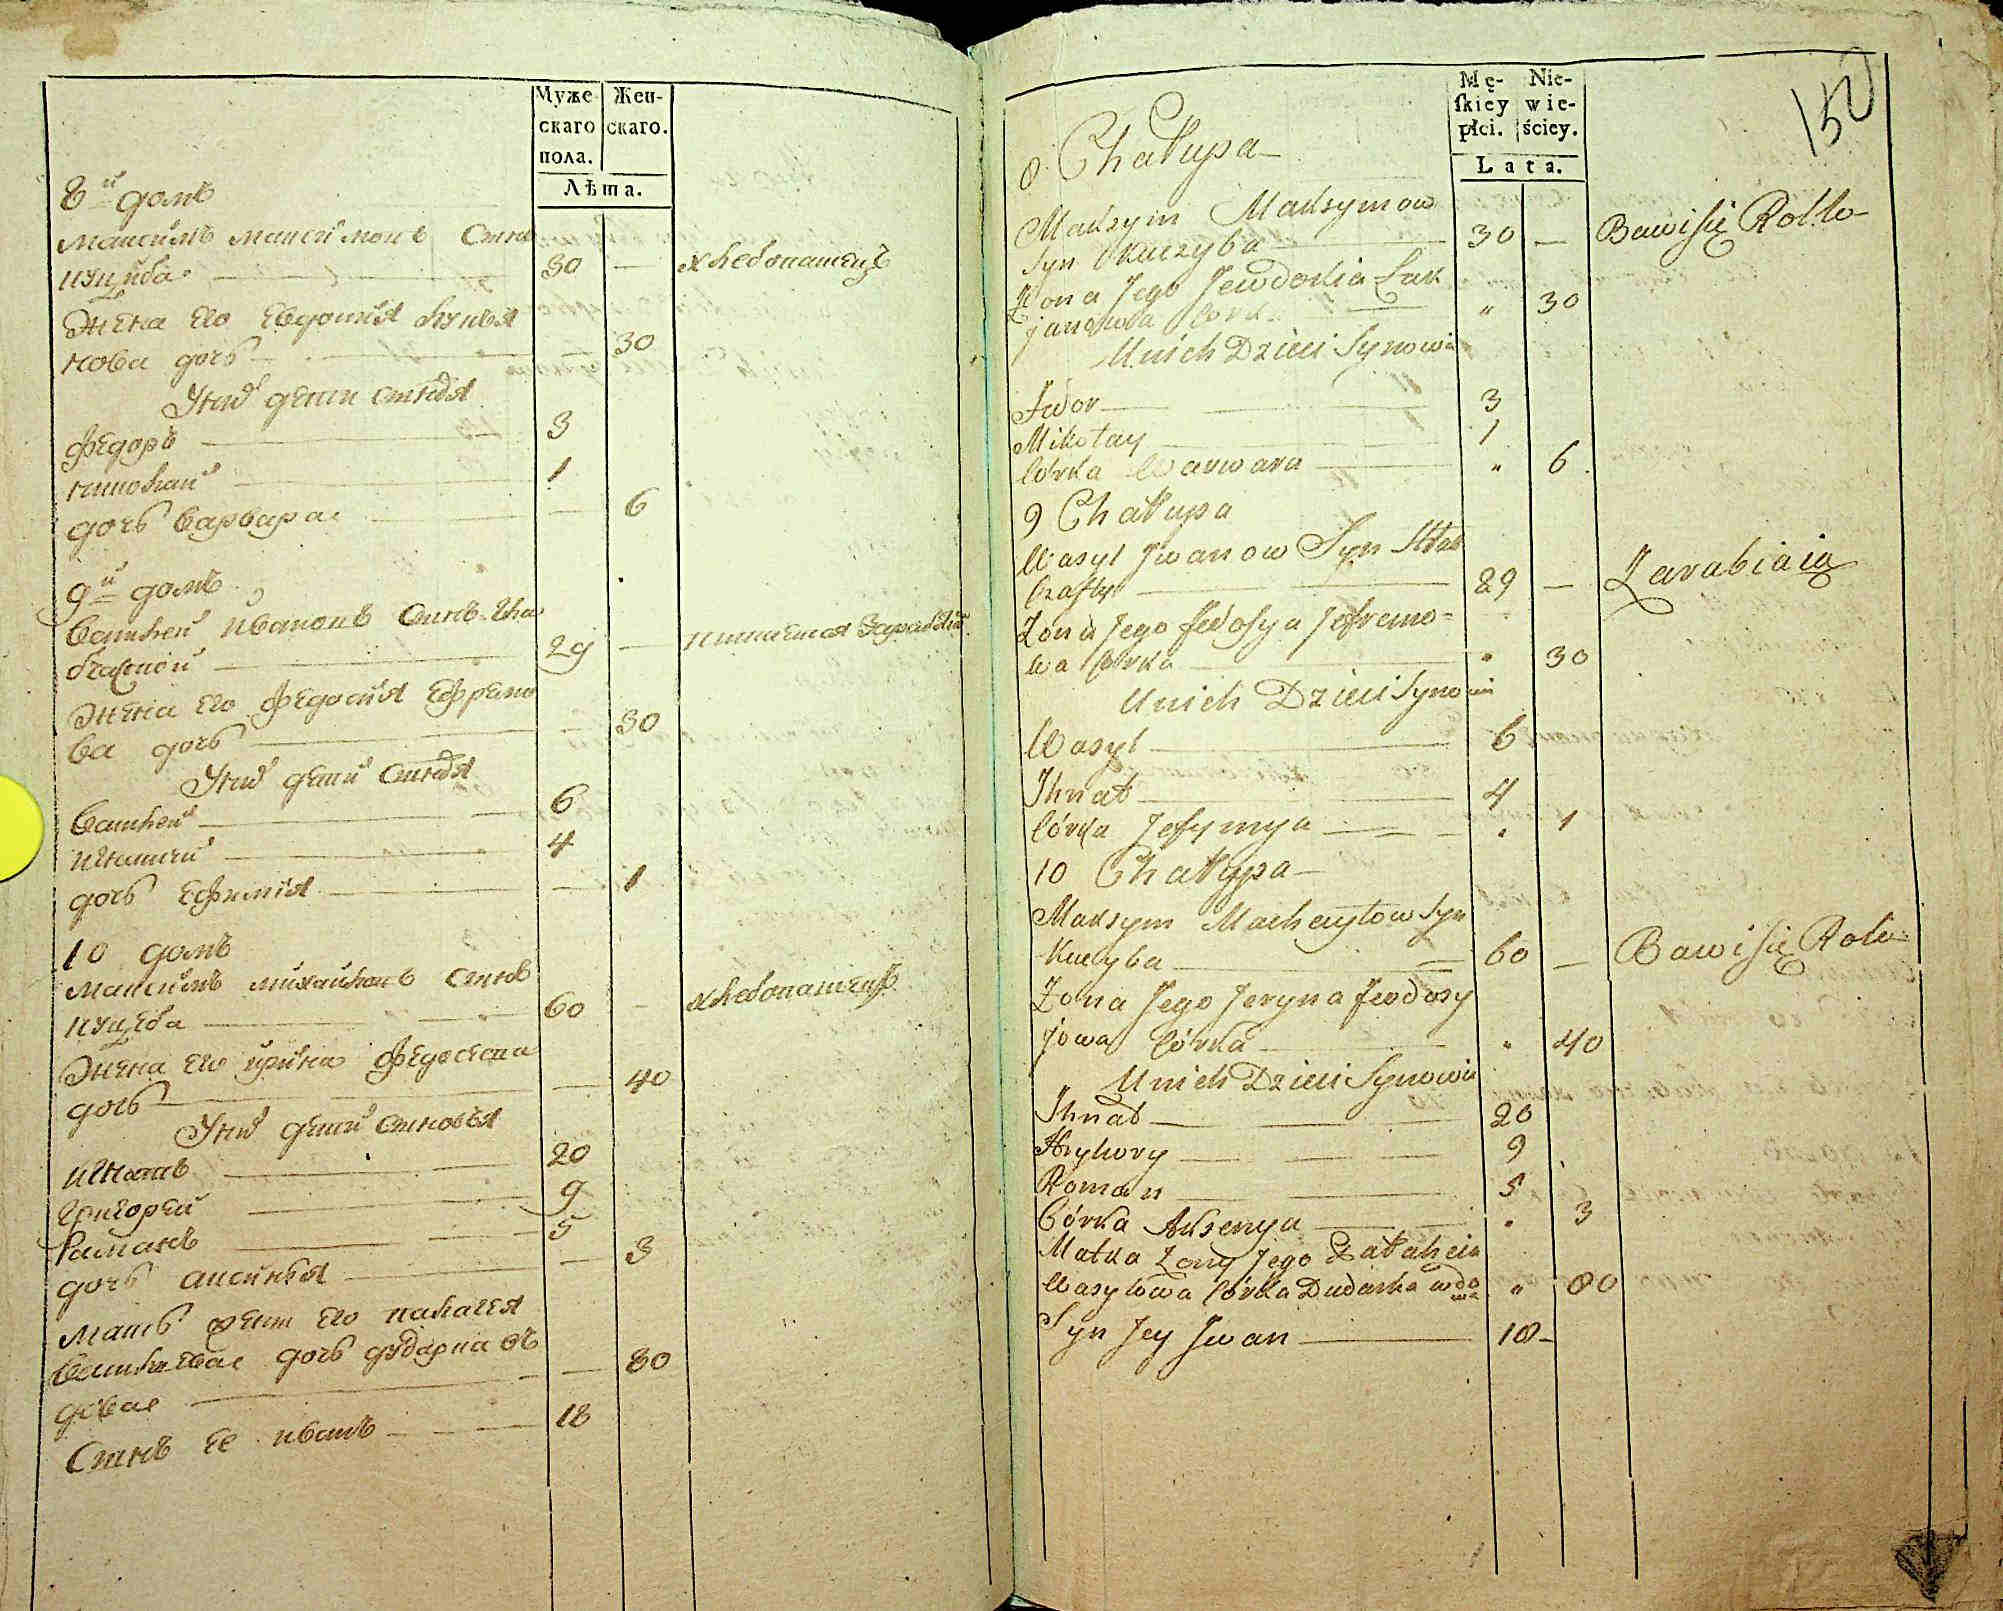 Муже-
скаго
пола.
Жен-
скаго.
Лѣта.
8й домъ
Максимъ Максимовъ Сынъ
Куцыба 30 — хлебопашецъ
Жена Его Евдокия Лукья
нова дочь — 30
У них дети сыновья
Федоръ 3
Николай 1
дочь Варвара — 6
9й домъ
Василей Ивановъ Сынъ
29 — питается
Жена Его Федосия Ефремо
ва дочь — 30
У них дети сыновья
Василей 6
Игнатий 4
дочь Ефимия — 1
10 домъ
Максимъ Михайловъ Сынъ
Куцыба 60 — хлебопашецъ
Жена Его Ирина Федосеева
дочь — 40
У них дети сыновья
Игнатъ 20
Григорей 9
Романъ 5
дочь Аксинья — 3
Мать жены Его Палагея
Васильева дочь Дударка въ
довае — 80
Сынъ Ее Иванъ 18
Mę-
ſkiey
płci.
Nie-
wie-
ściey.
Lata.
152
8 Chałupa
Maksym Maksymow
Syn Kuczyba 30 — Bawi się Rollo-
Żona Jego Jewdokia Łuk
janowa Córk. " 30
U nich Dzieci Synowie
Fedor 3
Mikołay 1
Córka Warwara " 6
9 Chałupa
Wasyl Jwanow Syn
29 — Zarabiaią
Żona Jego Fedosya Jefremo-
wa Córka " 30
U nich Dzieci Synowie
Wasyl 6
Ihnat 4
Córka Jefymya " 1
10 Chałupa
Maksym Machayłow Syn
Kucyba 60 — Bawi się Rolo-
Żona Jego Jeryna Fedosy
jowa Córka " 40
U nich Dzieci Synowie
Ihnat 20
Hryhory 9
Roman 5
Córka Aksenya " 3
Matka Żony Jego Pałaheia
Wasylowa Córka Dudarka wdo
wa " 80
Syn Jey Jwan 18